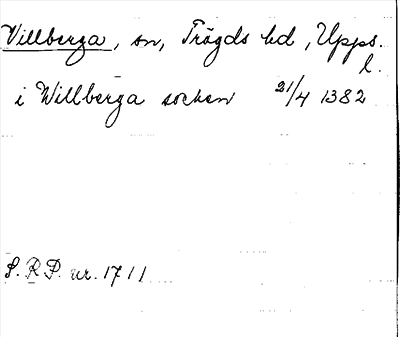 Villberga, sn, Trögds hd, Upps.
l.
i Willberga socken 21/4 1382
S.R.P. nr. 1711